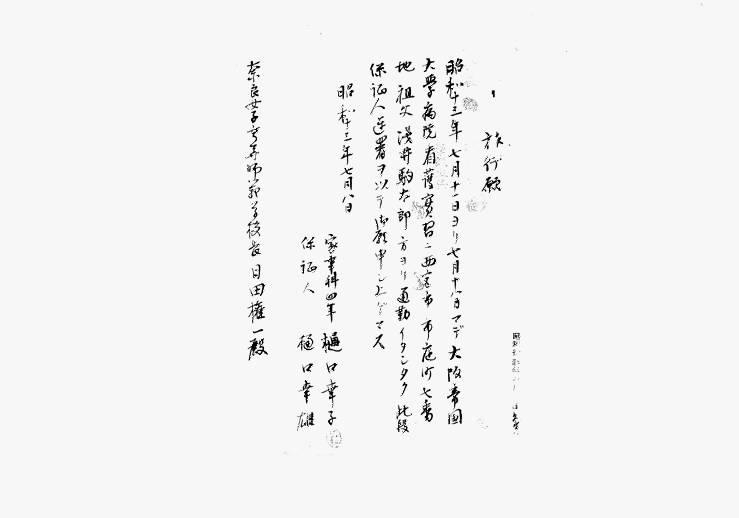 一、旅行願
昭和十三年七月十一日ヨリ七月十八日マデ大阪帝国
大學病院看護實習ニ西宮市市庭町七番
地祖父浅井駒太郎方ヨリ通勤イタシタク此段
保証人連署ヲ以テ御願申シ上ゲマス
昭和十三年七月八日
家事科四年 樋口幸子
保証人 樋口幸雄
奈良女子高等師範学校長日田権一殿